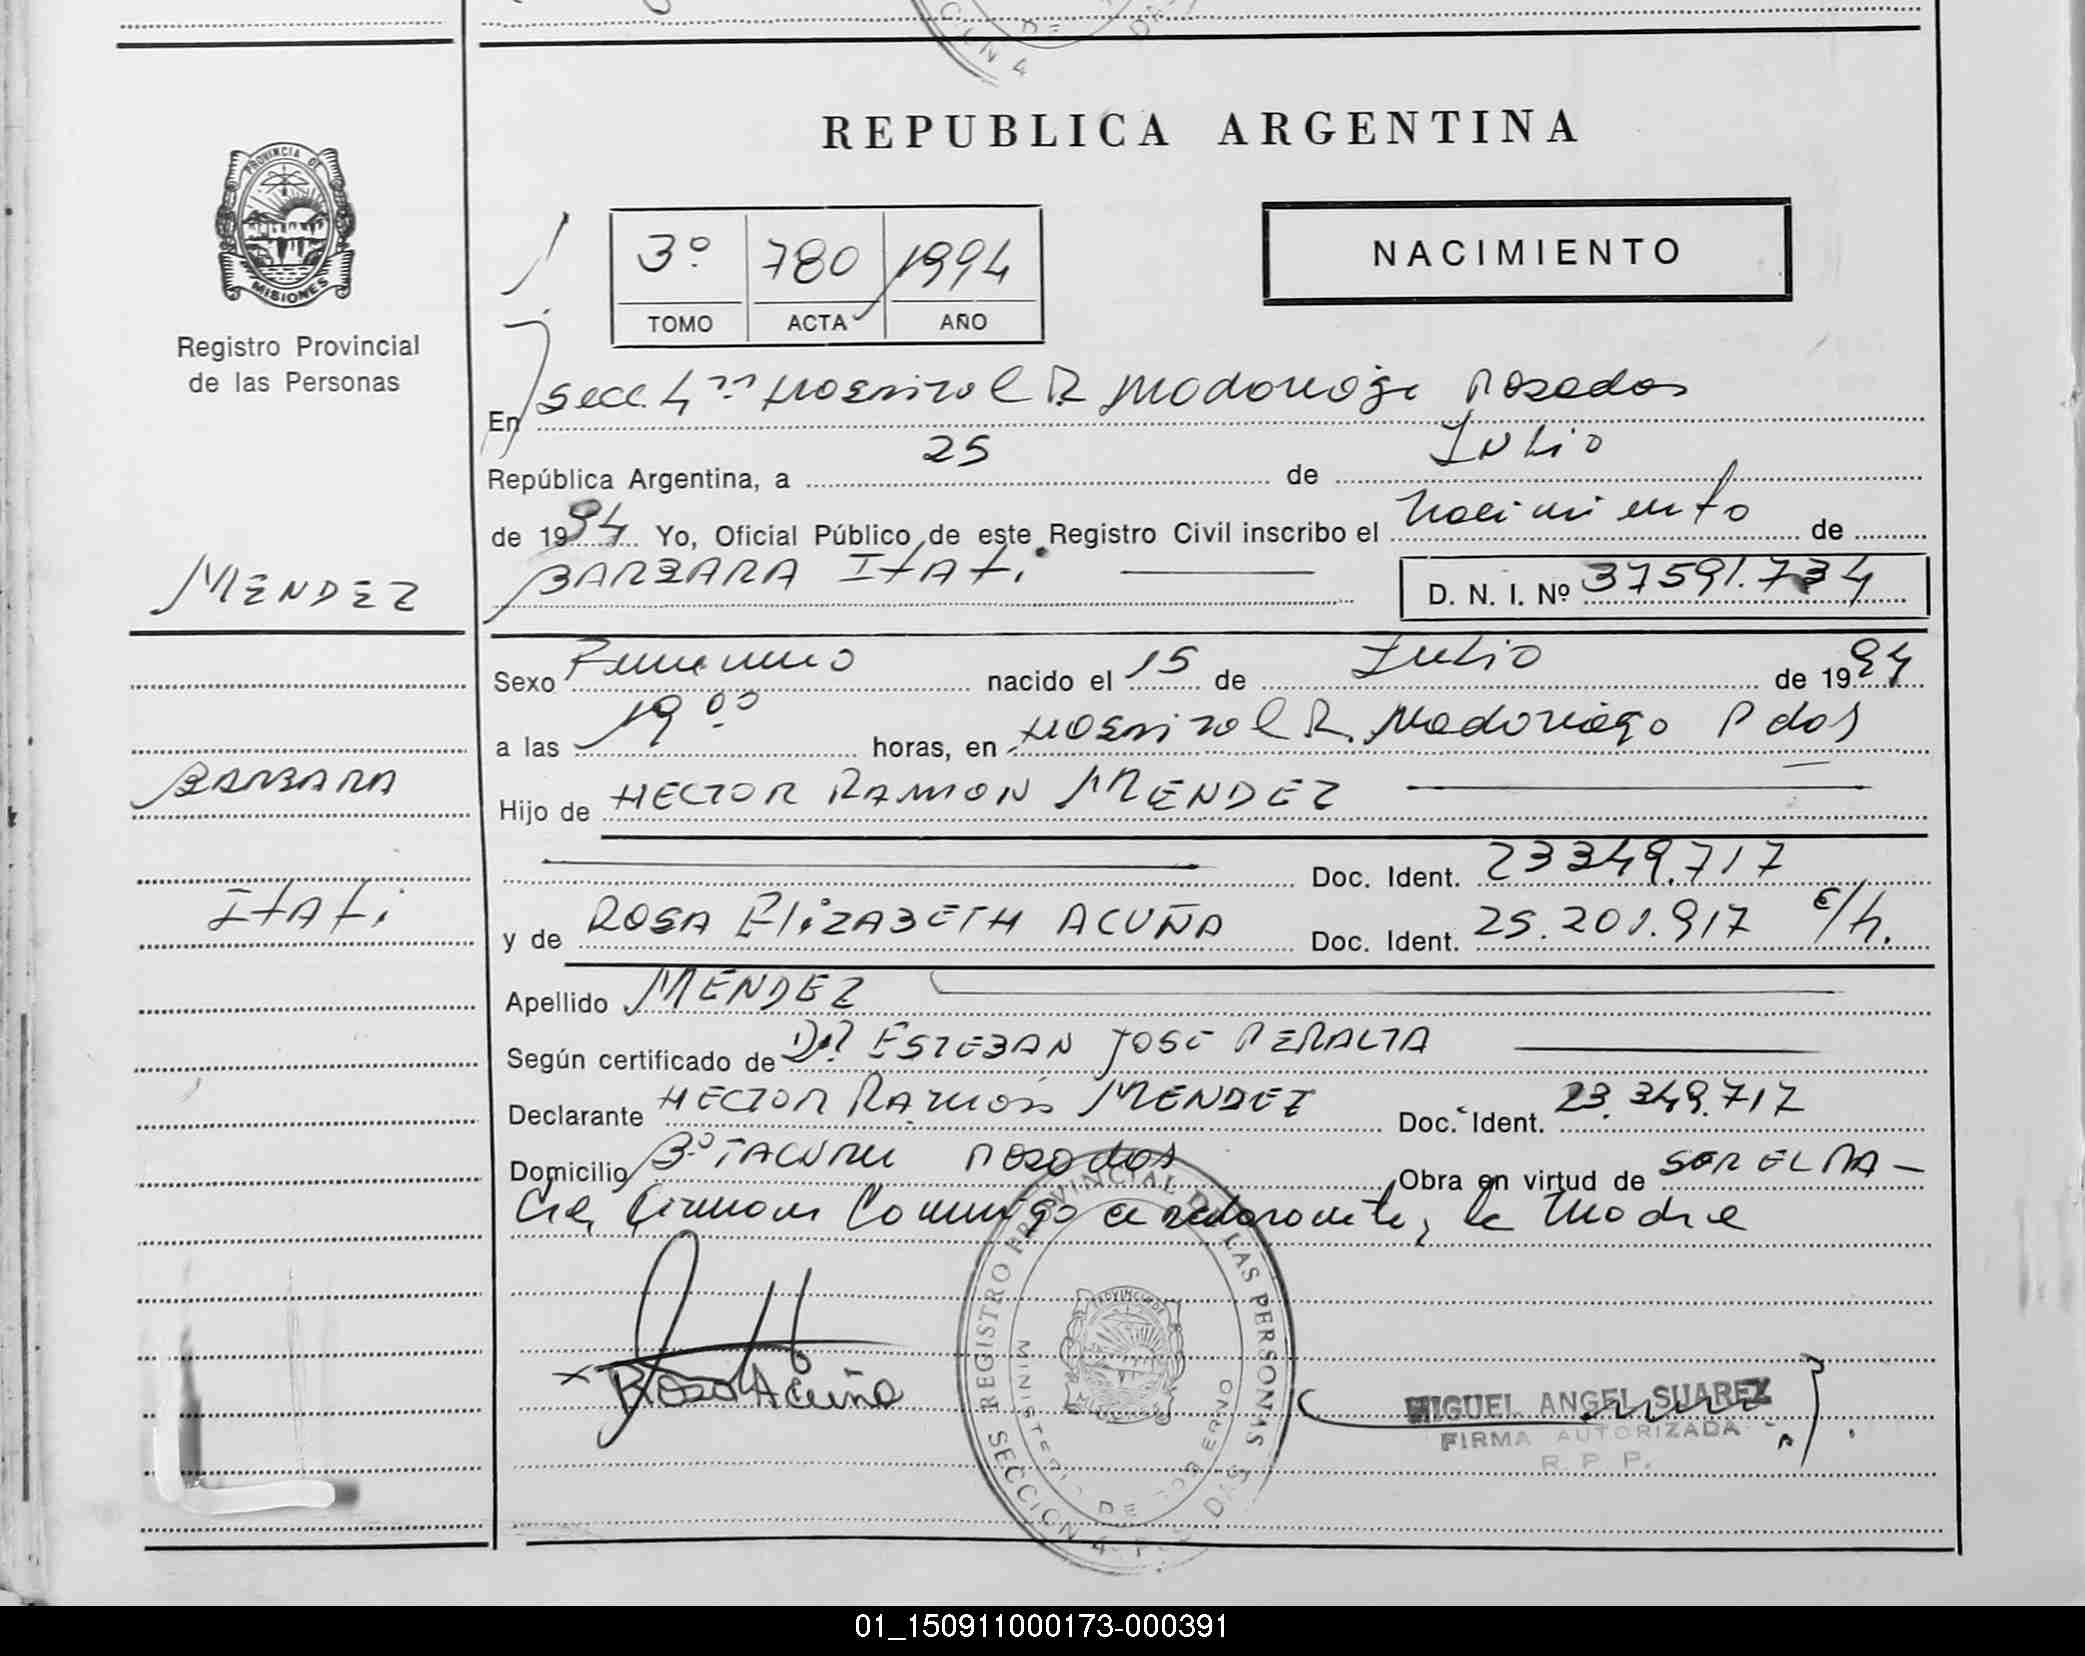 CION 4
DE
REPUBLICA ARGENTINA
PROVINCIA DE
MISIONES
Registro Provincial
de las Personas
3º 780 1994
TOMO ACTA AÑO
NACIMIENTO
En Secc. 4ta Hospital R. Madariaga Posadas
República Argentina, a 25 de Julio
de 1994 Yo, Oficial Público de este Registro Civil inscribo el nacimiento de
MENDEZ
BARBARA ItAti
D. N. I. Nº 37591.734
Sexo Femenino nacido el 15 de Julio de 1994
a las 19 00 horas, en Hospital R. Madariaga Pdas
BARBARA
Hijo de HECTOR RAMON MENDEZ
Doc. Ident. 23349.717
ItAti
y de ROSA ElizABETH ACUÑA Doc. Ident. 25.201.917 c/h.
Apellido MENDEZ
Según certificado de DR ESTEBAN JOSE PERALTA
Declarante HECTOR RAMON MENDEZ Doc. Ident. 23.349.717
Domicilio Bº TACURU Posadas Obra en virtud de SER EL PA-
dre, firman Conmigo el declarante, la Madre
REGISTRO PROVINCIAL DE LAS PERSONAS
MINISTERIO DE GOBIERNO
SECCION 4
PROVINCIA DE
Rosa Acuña
MIGUEL ANGEL SUAREZ
FIRMA AUTORIZADA
R. P. P.
01_150911000173-000391